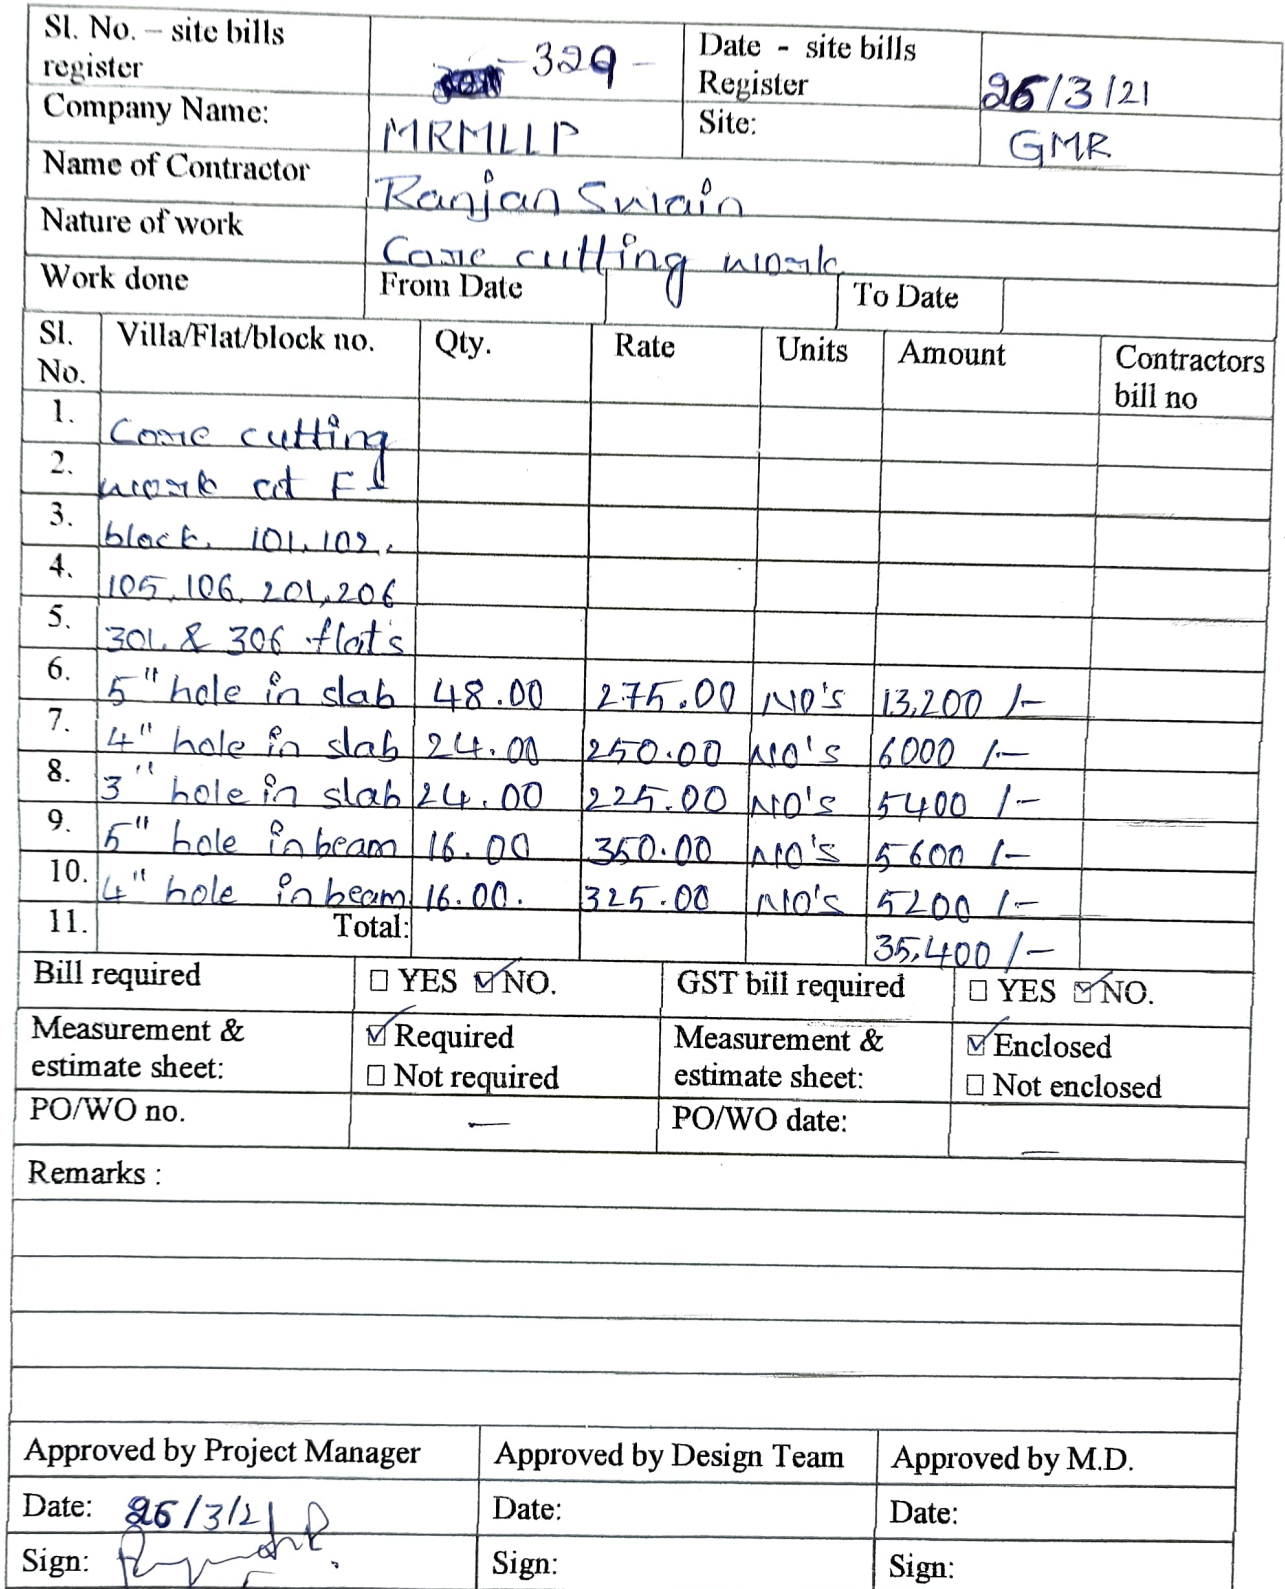 Sl. No. – site bills register -329- Date - site bills Register 25/3/21
Company Name: MRMLLP Site: GMR
Name of Contractor Ranjan Swain
Nature of work Core cutting work
Work done From Date To Date
Sl. No. Villa/Flat/block no. Qty. Rate Units Amount Contractors bill no
1. Core cutting
2. work at F-1
3. block. 101, 102,
4. 105, 106, 201, 206
5. 301, & 306 flat's
6. 5" hole in slab 48.00 275.00 NO'S 13,200 /-
7. 4" hole in slab 24.00 250.00 NO'S 6000 /-
8. 3" hole in slab 24.00 225.00 NO'S 5400 /-
9. 5" hole in beam 16.00 350.00 NO'S 5600 /-
10. 4" hole in beam 16.00. 325.00 NO'S 5200 /-
11. Total: 35,400 /-
Bill required ☐ YES ☑ NO. GST bill required ☐ YES ☑ NO.
Measurement & estimate sheet: ☑ Required ☐ Not required Measurement & estimate sheet: ☑ Enclosed ☐ Not enclosed
PO/WO no. — PO/WO date: —
Remarks :
Approved by Project Manager Approved by Design Team Approved by M.D.
Date: 25/3/21 Date: Date:
Sign: Sign: Sign: